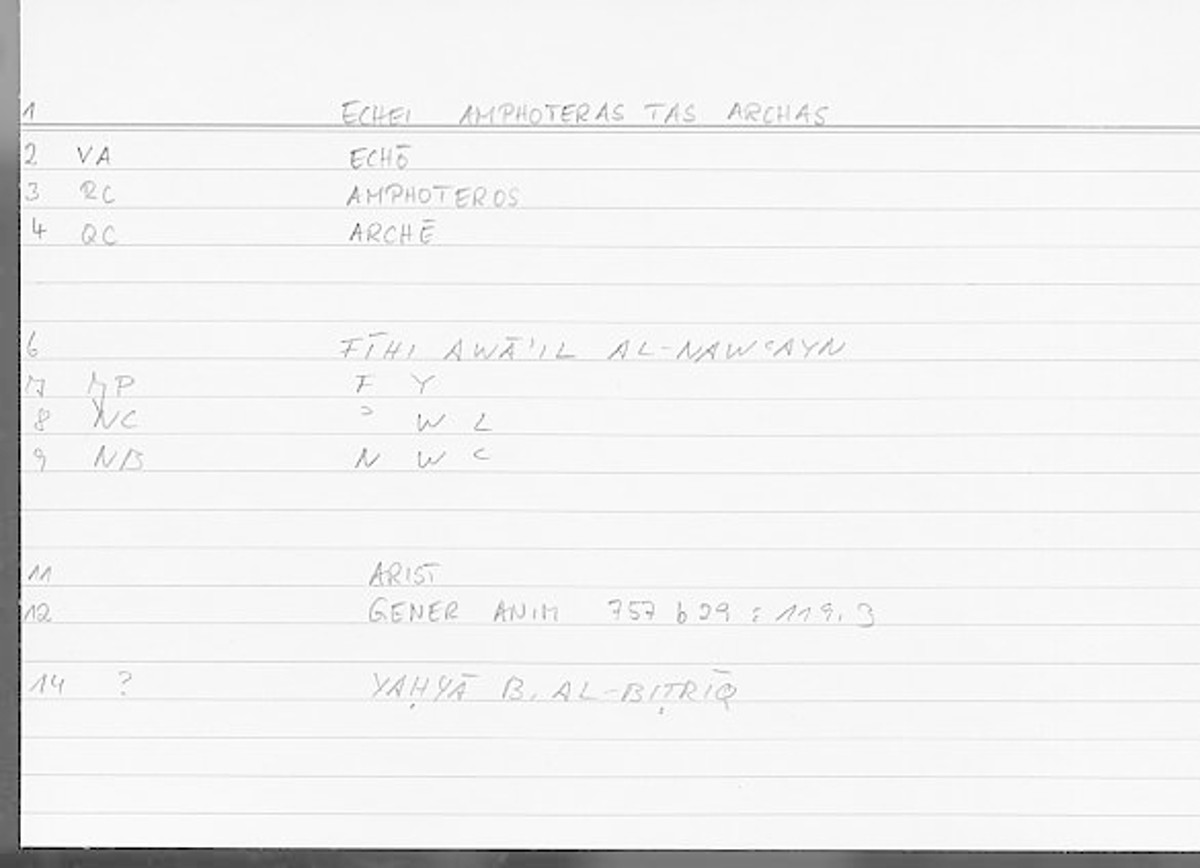 1 ECHEI AMPHOTERAS TAS ARCHAS
2 VA ECHŌ
3 RC AMPHOTEROS
4 QC ARCHĒ
6 FĪHI AWĀʾIL AL-NAWʿAYN
7 P F Y
8 NC ʾ W L
9 NB N W ʿ
11 ARIST
12 GENER ANIM 757 b 29 : 119.3
14 ? YAḤYĀ B. AL-BIṬRĪQ